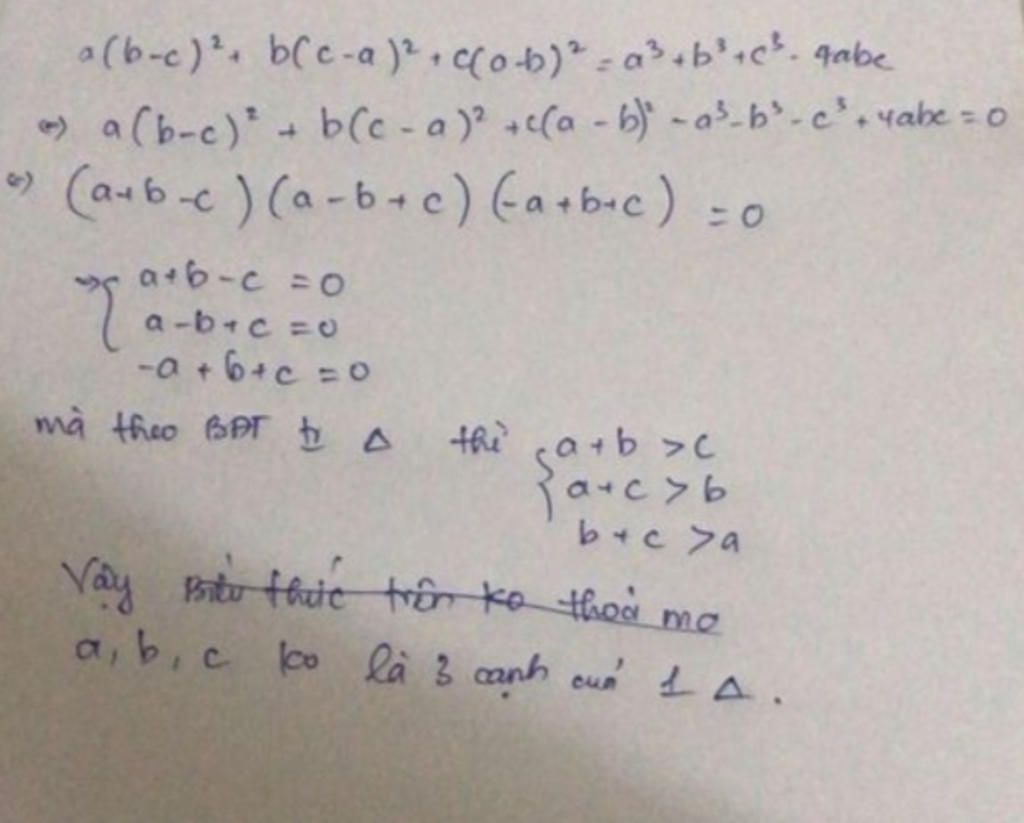 a(b-c)² + b(c-a)² + c(a-b)² = a³ + b³ + c³ - 4abc
⇔) a(b-c)² + b(c-a)² + c(a-b)² - a³ - b³ - c³ + 4abc = 0
⇔) (a+b-c)(a-b+c)(-a+b+c) = 0
⇒ { a+b-c = 0
a-b+c = 0
-a+b+c = 0
mà theo BĐT Δ thì { a+b > c
a+c > b
b+c > a
Vậy Biểu thức trên ko thoả mo
a, b, c ko là 3 cạnh của 1 Δ.